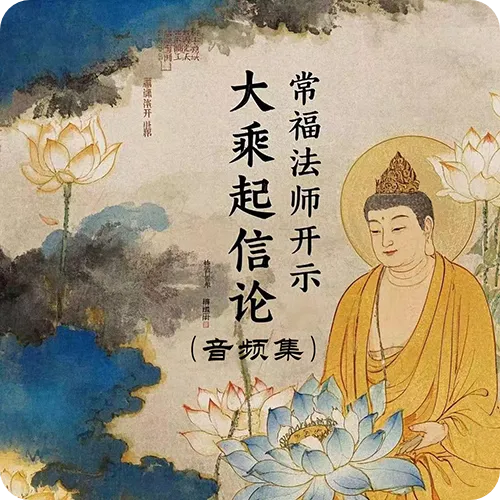 常福法师开示
大乘起信论
（音频集）